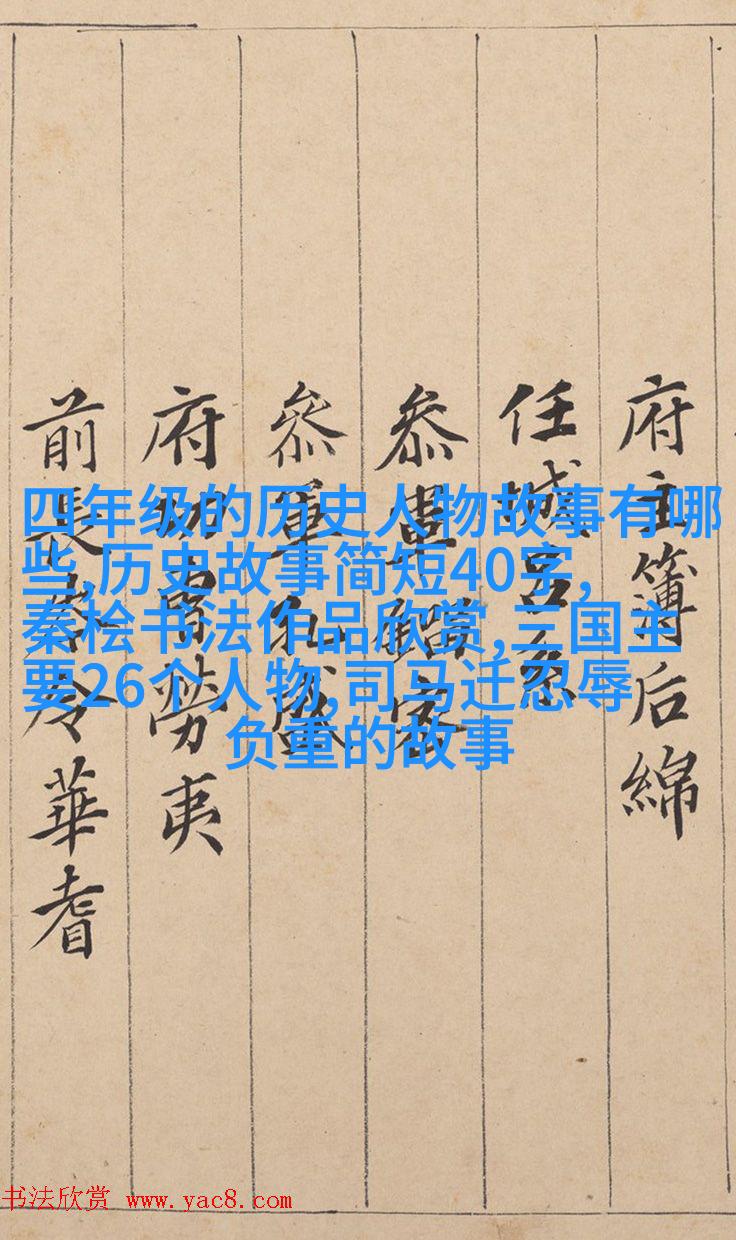 府主簿后綿
任城
參軍
參軍
府功曹勞夷
前長令華耆
四年级的历史人物故事有哪
些,历史故事简短40字,
秦桧书法作品欣赏,三国主
要26个人物,司马迁忍辱
负重的故事
书法欣赏 www.yac8.com